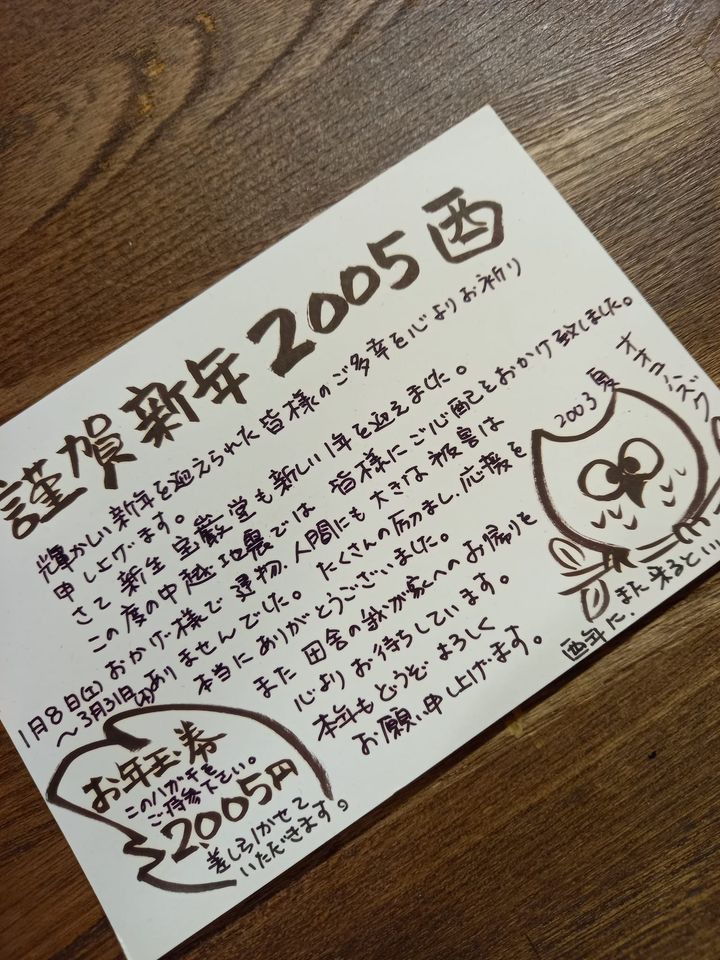 謹賀新年2005酉
輝かしい新年を迎えられた皆様のご多幸を心よりお祈り
申し上げます。
さて新生宝巌堂も新しい1年を迎えました。
この度の中越地震では皆様にご心配をおかけ致しました。
おかげ様で建物、人間にも大きな被害は
ありませんでした。たくさんの励まし、応援を
本当にありがとうございました。
また田舎の我が家へのお帰りを
心よりお待ちしています。
本年もどうぞよろしく
お願い申し上げます。
2003夏
オオコノハズク
酉年に、また来るといい
1月8日(土)
〜3月31日(木)
お年玉券
このハガキを
ご持参下さい。
2,005円
差し引かせて
いただきます。